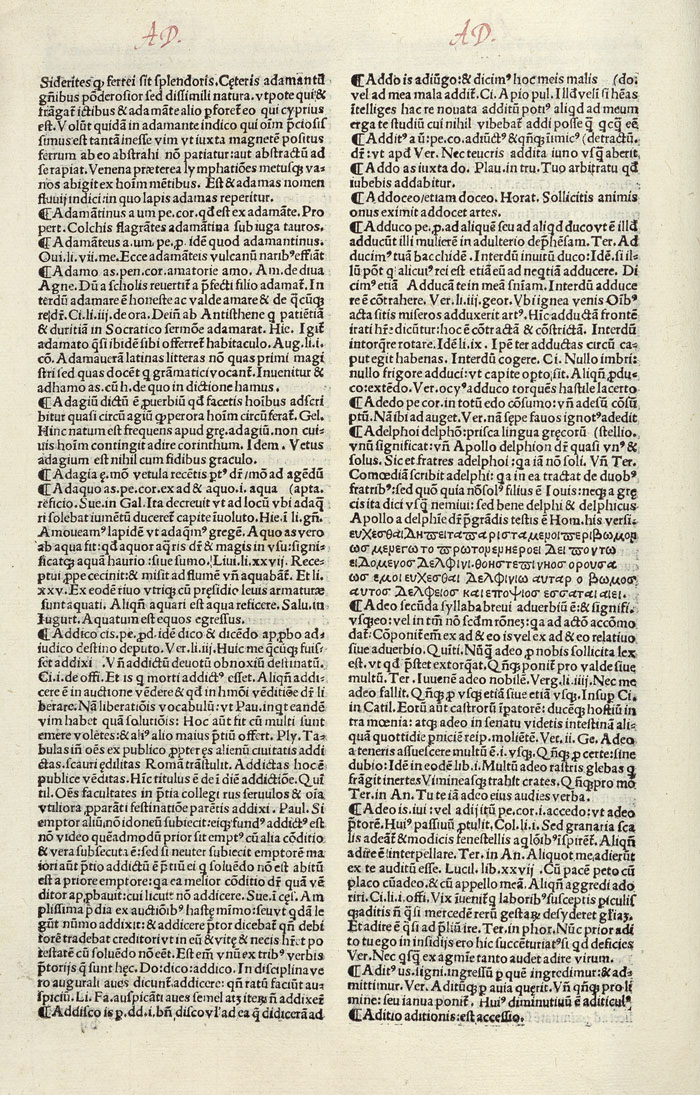 AD.
Sideritesq̃ ferrei sit splendoris. Cęteris adamantũ
gñibus põderosior sed dissimili natura. vtpote qui &
frãgat̃ ictibus & adamãte alio ꝑforet̃ eo qui cyprius
est. Volũt quidã in adamante indico qui oĩm p̃ciosis
simus est tantã inesse vim vt iuxta magnetẽ positus
ferrum ab eo abstrahi nõ patiatur: aut abstractũ ad
se rapiat. Venena pręterea lymphatiões metusq̃ va-
nos abigit ex hoĩm mẽtibus. Est & adamas nomen
fluuij indici: in quo lapis adamas reperitur.
¶ Adamãtinus a um pe. cor. qđ est ex adamãte. Pro
pert. Colchis flagrãtes adamãtina sub iuga tauros.
¶ Adamãteus a. um. pe. ꝓ. idẽ quod adamantinus.
Oui. li. vii. me. Ecce adamãteis vulcanũ narib⁹ efflãt
¶ Adamo as. pen. cor. amatorie amo. Am. de diua
Agne. Dũ a scholis reuertit̃ a p̃fecti filio adamat̃. In
terdũ adamare ẽ honeste ac valde amare & de q̃cũq̃
re dr̃. Ci. li. iij. de ora. Deiñ ab Antisthene q̃ patiẽtiã
& duritiã in Socratico sermõe adamarat. Hic. Igit̃
adamato q̃si ibidẽ sibi offerret̃ habitaculo. Aug. li. i.
cõ. Adamauerã latinas litteras nõ quas primi magi
stri sed quas docẽt q̃ grãmatici vocant̃. Inuenitur &
adhamo as. cũ h. de quo in dictione hamus.
¶ Adagiũ dictũ ẽ ꝓuerbiũ qđ facetis hoĩbus adscri
bitur quasi circũ agiũ q̃ ꝑ opera hoĩm circũferat̃. Gel.
Hinc natum est frequens apud grę. adagiũ. non cui-
uis hoĩm contingit adire corinthum. Idem. Vetus
adagium est nihil cum fidibus graculo.
¶ Adagia ę. mõ vetula recẽtis pt⁹ dr̃ /mõ ad agẽdũ
¶ Adaquo as. pe. cor. ex ad & aquo. i. aqua (apta.
reficio. Sue. in Gal. Ita decreuit vt ad locũ vbi adaq̃
ri solebat iumẽtũ duceret̃ capite ĩuoluto. Hie. ĩ li. gñ.
Amoueam⁹ lapidẽ vt adaq̃m⁹ gregẽ. Aquo as vero
ab aqua fit: qđ aquor aq̃ris dr̃ & magis in vsu: signi-
ficatq̃ aqua haurio: siue sumo. Liui. li. xxvij. Rece-
ptui ꝓpe cecinit: & misit ad flumẽ vñ aquabãt̃. Et li.
xxv. Ex eodẽ riuo vtriq̃ cũ pręsidio leuis armaturæ
sunt aquati. Aliqñ aquari est aqua reficere. Salu. in
Iugurt. Aquatum est quos egressus.
¶ Addico cis. pe. ꝓd. idẽ dico & dicẽdo apꝓbo ad-
iudico destino deputo. Ver. li. iij. Huic me q̃cũq̃ fuis-
set addixi. Vñ addictũ deuotũ obnoxiũ destinatũ.
Ci. i. de offi. Et is q̃ morti addict⁹ esset. Aliqñ addi-
cere ẽ in auctione vẽdere & qđ in hmõi vẽditiõe dr̃ li
berare. Nã liberatiõis vocabulũ: vt Pau. inqt̃ eandẽ
vim habet quã solutiõis: Hoc aũt fit cũ multi sunt
emere volẽtes: & ali⁹ alio maius p̃tiũ offert. Ply. Ta-
bulas iñ oẽs ex publico ꝓpter ęs alienũ ciuitatis addi
ctas. scauri ędilitas Romã trãstulit. Addictas hoc ẽ
publice vẽditas. Hĩc titulus ẽ de ĩ diẽ addictiõe. Quĩ
til. Oẽs facultates in p̃tia collegi rus seruulos & oĩa
vtiliora ꝓparãti festinatiõe parẽtis addixi. Paul. Si
emptor aliũ nõ idoneũ subiecit: eiq̃ fund⁹ addict⁹ est
nõ video quẽadmodũ prior sit empt⁹ cũ alia cõditio
& vera subsecuta ẽ: sed si neuter subiecit emptorẽ ma
iori aũt p̃tio addictũ ẽ p̃tiũ ei q̃ soluẽdo nõ est abitũ
est a priore emptore: q̃a ea melior cõditio dr̃ quã vẽ
ditor apꝓbauit: cui licuit̃ nõ addicere. Sue. ĩ cęs. Am
plissima p̃dia ex auctiõib⁹ hastę mĩmo: seu vt qđã le
gũt nũmo addixit: & addicere p̃tor dicebat̃ qñ debi
torẽ tradebat creditori vt in eũ & vitę & necis hr̃et po
testatẽ cũ soluẽdo nõ eẽt. Est eĩm vnũ ex trib⁹ verbis
p̃torijs q̃ sunt hęc. Do: dico: addico. In disciplina ve
ro augurali aues dicunt̃ addicere: qñ ratũ faciũt au-
spiciũ. Li. Fa. auspicãti aues semel atq̃ iterũ ñ addixere
¶ Addisco is ꝓ. dd. i. bñ disco vl̃ ad ea q̃ didicerã ad
AD.
¶ Addo is adiũgo: & dicim⁹ hoc meis malis (do.
vel ad mea mala addit̃. Ci. Apio pul. Illđ veli si hẽas
ĩtelliges hac re nouata additũ poti⁹ aliqđ ad meum
erga te studiũ cui nihil videbat̃ addi posse q̃ q̃cq̃ eẽ
¶ Addit⁹ a ũ: pe. co. adiũct⁹ & qñq̃ inimic⁹ (detractũ.
dr̃: vt apđ Ver. Nec teucris addita iuno vsq̃ aberit.
¶ Addo as iuxta do. Plau. in tru. Tuo arbitratu qđ
iubebis addabitur.
¶ Addoceo/etiam doceo. Horat. Sollicitis animis
onus eximit addocet artes.
¶ Adduco pe. ꝓ. ad aliquẽ seu ad aliqđ duco vt ẽ illđ
adducũt illi mulierẽ in adulterio dep̃hẽsam. Ter. Ad
ducim⁹ tuã bacchidẽ. Interdũ inuitũ duco: Idẽ. si il-
lũ põt q̃ alicui⁹ rei est etiã eũ ad neq̃tiã adducere. Di
cim⁹ etiã Adducã te in meã sñiam. Interdũ adduce
re ẽ cõtrahere. Ver. li. iij. geor. Vbi ignea venis Oĩb⁹
acta sitis miseros adduxerit art⁹. Hĩc adductã frontẽ
irati hr̃e dicũtur: hoc ẽ cõtractã & cõstrictã. Interdũ
intorq̃re rotare. Idẽ li. ix. Ipẽ ter adductas circũ ca-
put egit habenas. Interdũ cogere. Ci. Nullo imbri:
nullo frigore adduci: vt capite opto; sit. Aliqñ ꝓdu-
co: extẽdo. Ver. ocy⁹ adduco torquẽs hastile lacerto
¶ Adedo pe cor. in totũ edo cõsũmo: vñ adesũ cõsũ
ptũ. Nã ibi ad auget. Ver. nã sępe fauos ignot⁹ adedit
¶ Adelphoi delphõ: prisca lingua gręcorũ (stellio.
vnũ significat: vñ Apollo delphion dr̃ quasi vn⁹ &
solus. Sic et fratres adelphoi: q̃a iã nõ soli. Vñ Ter.
Comœdiã scribit adelphi: q̃a in ea tractat de duob⁹
fratrib⁹: sed quõ quia nõ sol⁹ filius ẽ Iouis: neq̃ a grę
cis ita dici vsq̃ nemiui: sed bene delphi & delphicus
Apollo a delphi⸗de p̃grãdis testis ẽ Hom. his versi⸗
¶ Adeo secũda syllaba breui aduerbiũ ẽ: & signifi.
vsq̃eo: vel in tm̃ nõ secđm rõnes: q̃a ad actõ accõmo
dat̃. Cõponit̃ eĩm ex ad & eo is vel ex ad & eo relatiuo
siue aduerbio. Quĩti. Nũq̃ adeo ꝓ nobis sollicita lex
est. vt qđ p̃stet extorq̃at. Qñq̃ ponit̃ pro valde siue
multũ. Ter. Iuuenẽ adeo nobilẽ. Verg. li. iiij. Nec me
adeo fallit. Qñq̃ ꝓ vsq̃ etiã siue etiã vsq̃. Insup Ci.
in Catil. Eorũ aũt castrorũ ĩpatorẽ: ducẽq̃ hostiũ in
tra mœnia: atq̃ adeo in senatu videtis intestinã ali-
quã quottidie pniciẽ reip. moliẽtẽ. Ver. ii. Ge. Adeo
a teneris assuescere multũ ẽ. i. vsq̃. Qñq̃ ꝓ certe: sine
dubio: Idẽ in eodẽ lib. i. Multũ adeo rastris glebas q̃
frãgit inertes Vimineasq̃ trahit crates. Qñq̃ pro mõ
Ter. in An. Tu te iã adeo eius audies verba.
¶ Adeo is. iui: vel adij itũ pe. cor. i. accedo: vt adeo
p̃torẽ. Hui⁹ passiuũ ꝓtulit. Col. li. i. Sed granaria sca
lis adeãt̃ & modicis fenestellis aq̃lõib⁹ ĩspirẽt̃. Aliqñ
adire ẽ ĩterpellare. Ter. in An. Aliquot me adierũt
ex te auditũ esse. Lucil. lib. xxvij. Cũ pacẽ peto cũ
placo cũ adeo. & cũ appello meã. Aliqñ aggredi ado
riri. Ci. li. i. offi. Vix ĩuenit̃ q̃ laborib⁹ susceptis piculis
q̃ aditis ñ q̃si mercedẽ rerũ gestaȝ desyderet gl̃iaȝ.
Et adire ẽ q̃si ad p̃liũ ire. Ter. in phor. Nũc prior adi
to tu ego in insidijs ero hic succẽturiat⁹ si qđ deficies
Ver. Nec q̃sq̃ ex agmĩe tanto audet adire virum.
¶ Adit⁹ us. iĩgni. ingressũ ꝓ quẽ ingredimur: & ad-
mittimur. Ver. Aditũq̃ ꝓ auia querit. Vñ qñq̃ pro li
mine: seu ianua ponit̃. Hui⁹ diminutiuũ ẽ aditicul⁹
¶ Aditio aditionis: est accessio.